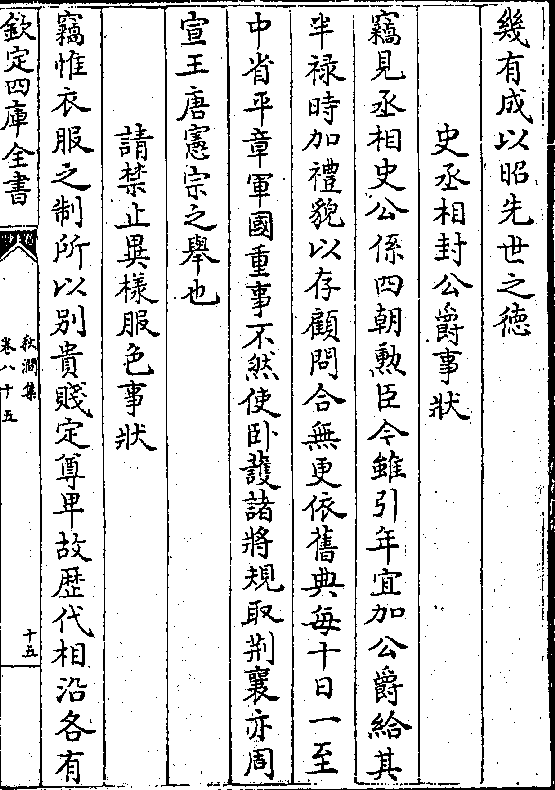 幾有成以昭先世之徳
史丞相封公爵事狀
竊見丞相史公係四朝勲臣今雖引年宜加公爵給其
半禄時加禮貌以存顧問合無更依舊典每十日一至
中省平章軍國重事不然使卧護諸將規取荆襄亦周
宣王唐憲宗之舉也
請禁止異樣服色事狀
竊惟衣服之制所以别貴賤定尊卑故歴代相沿各有
欽定四庫全書
秋澗集
卷八十五
十五